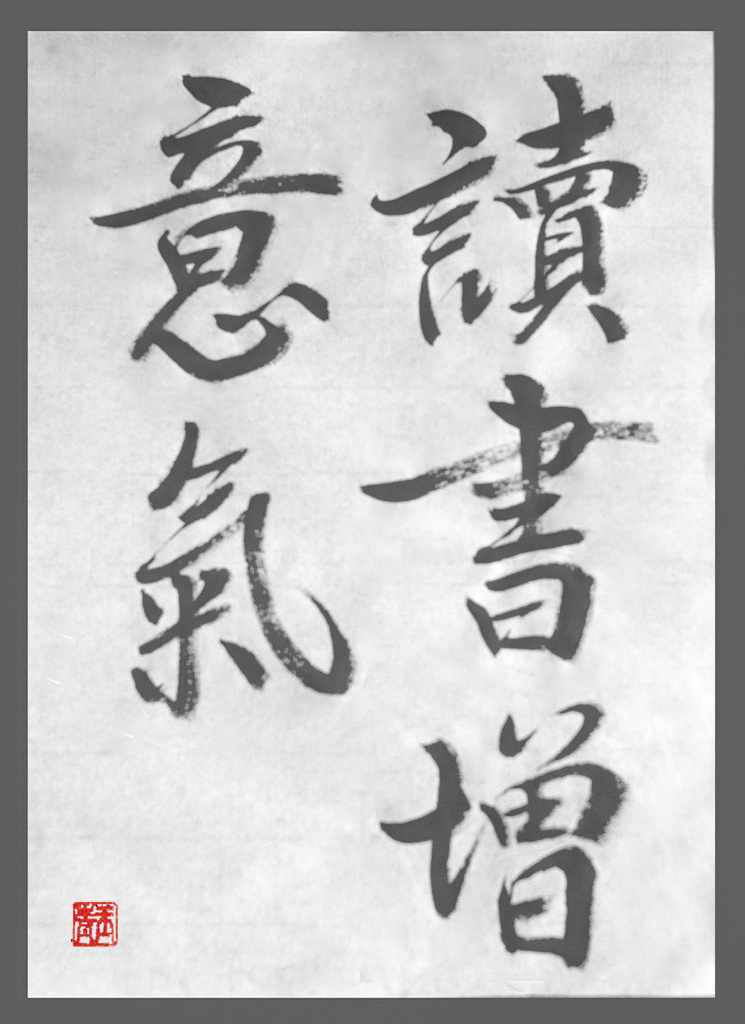 讀書增
意氣